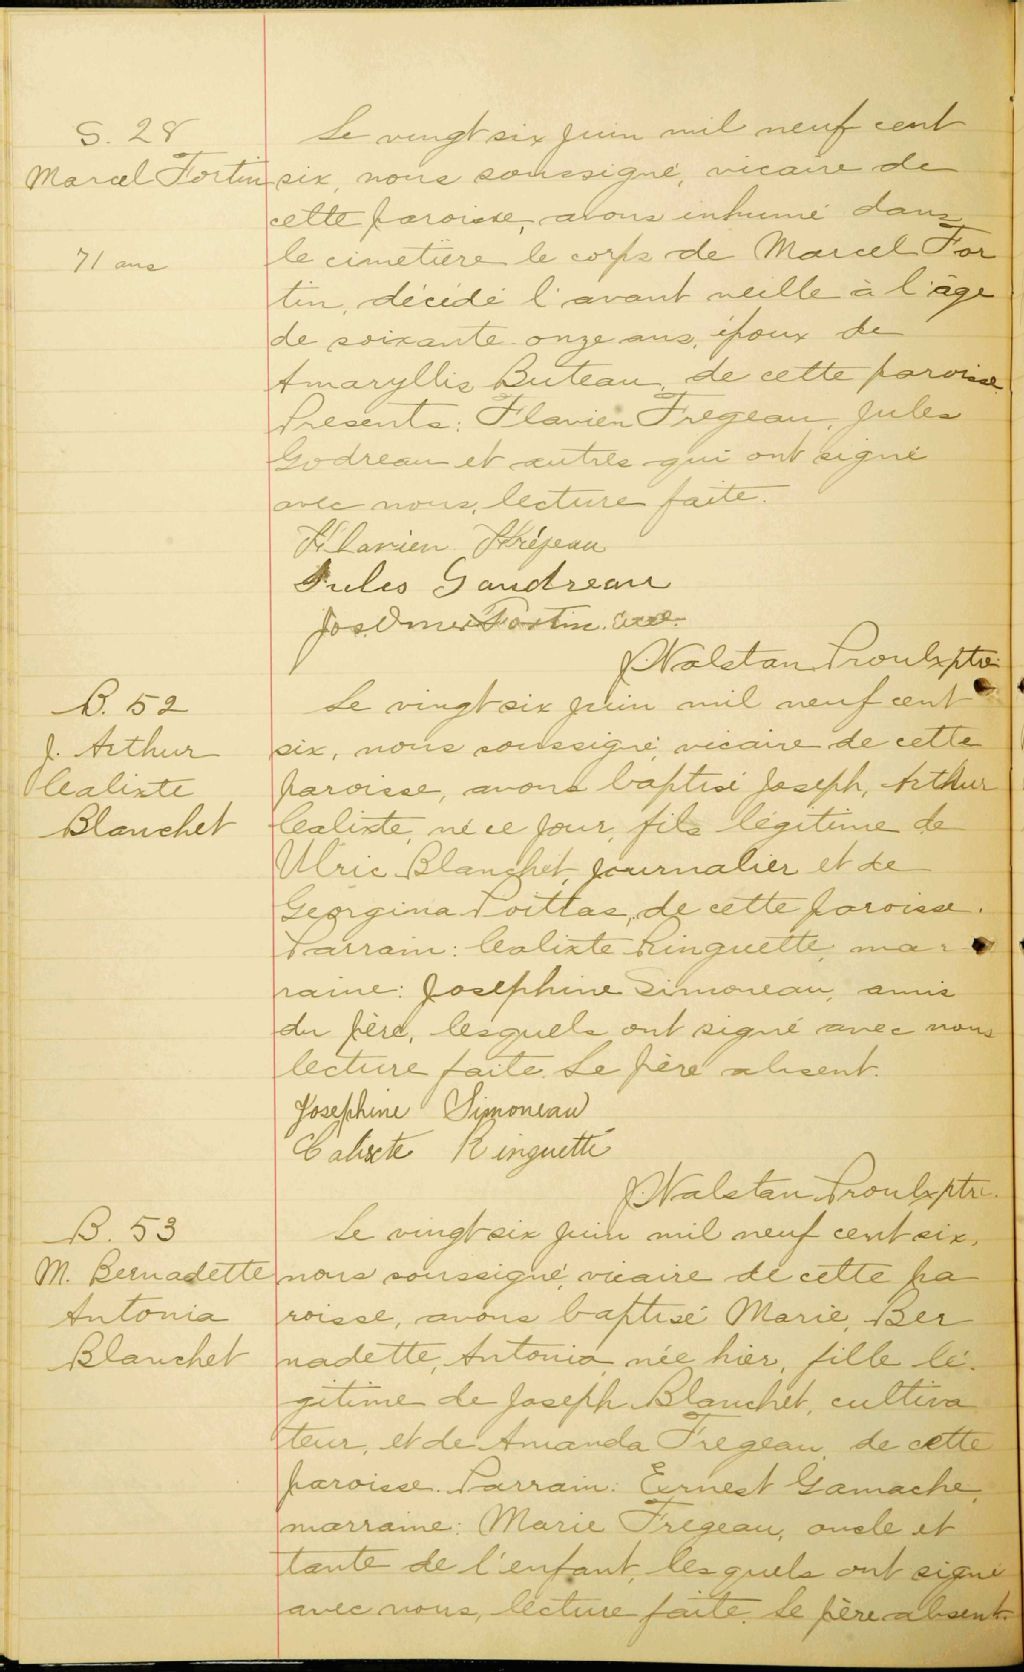 S. 28
Marcel Fortin
71 ans
Le vingt six juin mil neuf cent
six, nous soussigné, vicaire de
cette paroisse, avons inhumé dans
le cimetière le corps de Marcel For
tin, décédé l'avant veille à l'âge
de soixante onze ans, époux de
Amaryllis Buteau, de cette paroisse.
Présents: Flavien Fregeau, Jules
Godreau et autres qui ont signé
avec nous, lecture faite.
Flavien Frégeau
Jules Gaudreau
Jos. Omer Fortin
J. Walstan Proulx ptre
B. 52
J. Arthur
Calixte
Blanchet
Le vingt six juin mil neuf cent
six, nous soussigné, vicaire de cette
paroisse, avons baptisé Joseph, Arthur
Calixte, né ce jour, fils légitime de
Ulric Blanchet, journalier et de
Georgina Poittas, de cette paroisse.
Parrain: Calixte Ringuette, mar
raine: Josephine Simoneau, amis
du père, lesquels ont signé avec nous
lecture faite. Le père absent.
Josephine Simoneau
Calixte Ringuette
J. Walstan Proulx ptre.
B. 53
M. Bernadette
Antonia
Blanchet
Le vingt six juin mil neuf cent six,
nous soussigné, vicaire de cette pa
roisse, avons baptisé Marie, Ber
nadette, Antonia, née hier, fille lé.
gitime de Joseph Blanchet, cultiva
teur, et de Amanda Fregeau, de cette
paroisse. Parrain: Ernest Gamache,
marraine: Marie Fregeau, oncle et
tante de l'enfant, lesquels ont signé
avec nous, lecture faite. Le père absent.